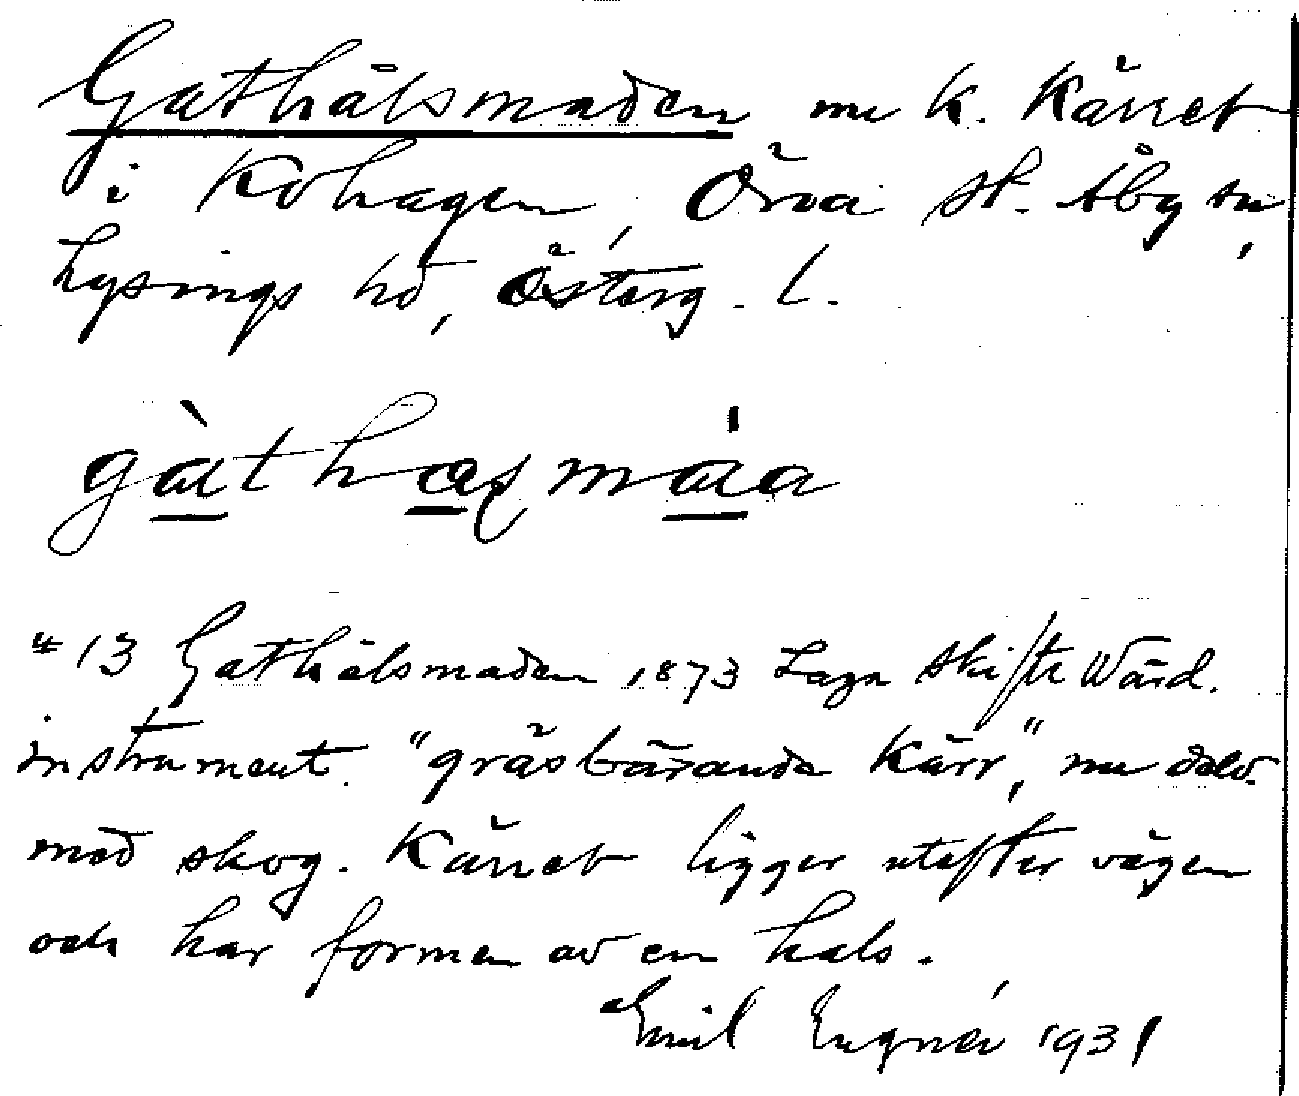 Gathålsmaden nu k. Kärret
i Kohagen, Örva st. Åby sn,
Lysings hd, Österg. l.
gàt h máa
# 13 Gathålsmaden 1873 Laga skifte Wärd.
instrument. "gräsbärande Kärr", nu delv.
med skog. Kärret ligger utefter vägen
och har formen av en hals.
Emil Engnér 1931